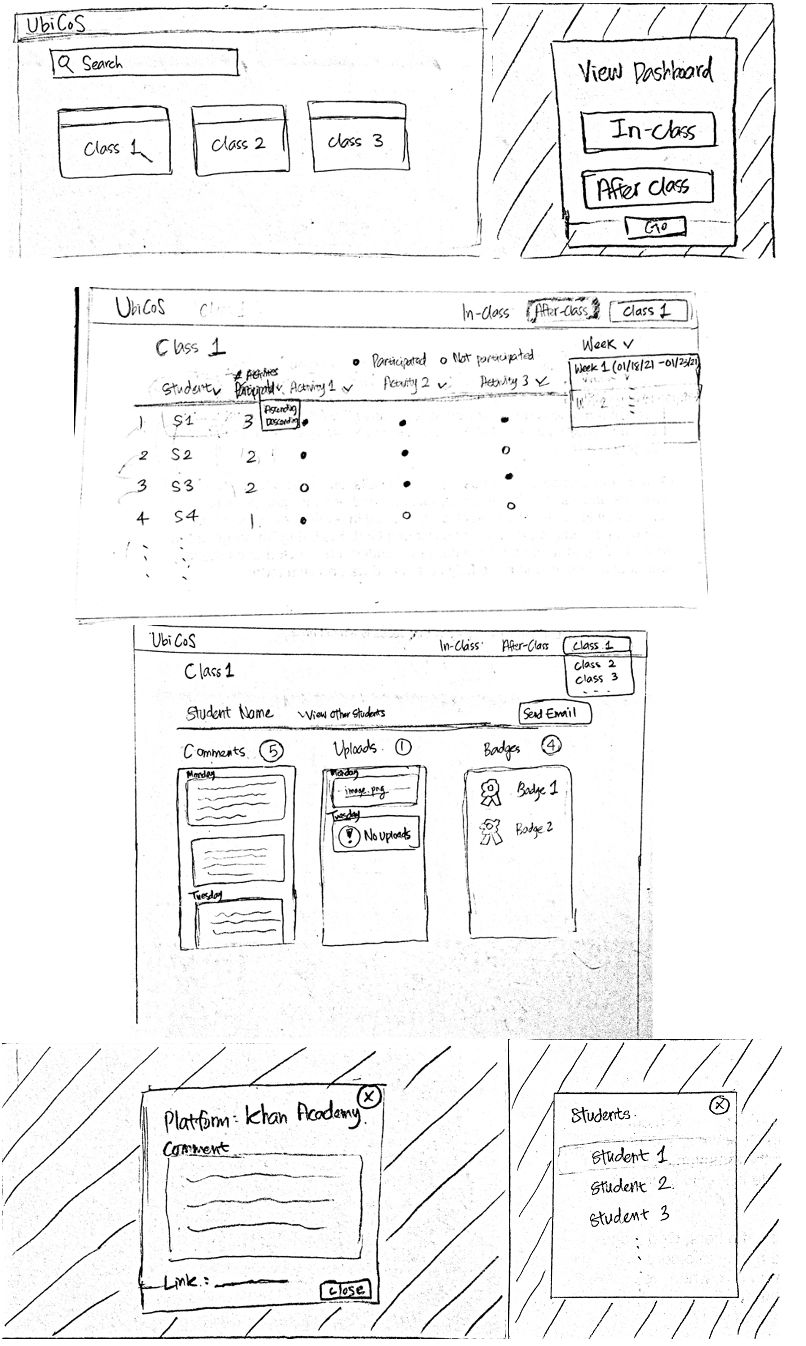 UbiCoS
Search
Class 1
Class 2
Class 3
View Dashboard
In-class
After class
Go
UbiCoS Class 1 In-Class After-Class Class 1
Class 1
Participated Not participated
Week
Week 1 (01/18/21 - 01/23/21)
# Activities
Student Participated Activity 1 Activity 2 Activity 3
Ascending
Descending
1 S1 3
2 S2 2
3 S3 2
4 S4 1
UbiCoS In-Class After-Class Class 1
Class 2
Class 3
Class 1
Student Name View Other Students Send Email
Comments 5 Uploads 1 Badges 4
Monday
Tuesday
Monday
image.png
Tuesday
! No Uploads
Badge 1
Badge 2
X
Platform: Khan Academy
Comment
Link:
Close
X
Students
Student 1
Student 2
Student 3